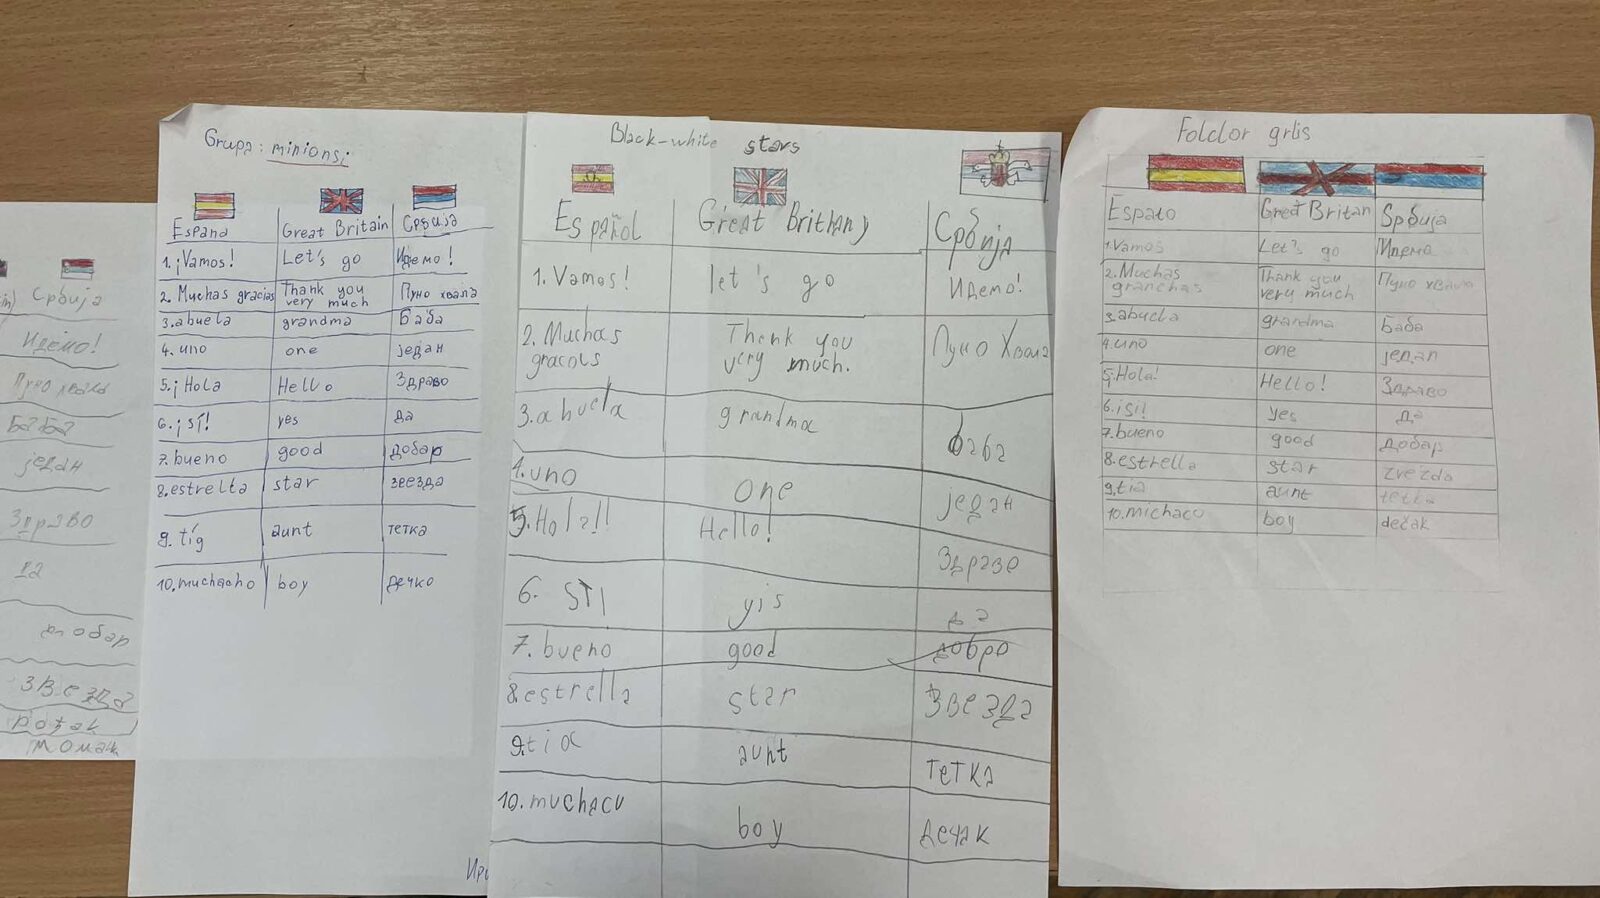 Србија
Идемо!
Пуно хвала
Баба
један
Здраво
да
добар
звезда
момак
Grupa: minionsi
Espana Great Britain Србија
1. ¡Vamos! Let's go Идемо!
2. Muchas gracias Thank you very much Пуно хвала
3. abuela grandma Баба
4. uno one један
5. ¡Hola Hello Здраво
6. ¡sí! yes да
7. bueno good добар
8. estrella star звезда
9. tíg aunt тетка
10. muchacho boy дечко
Black-white stars
Español Great Brithany Србија
1. Vamos! let's go Идемо!
2. Muchas Thank you Пуно Хвала
gracols very much.
3. abuela grandma баба
4. uno one један
5. Hola!! Hello! Здраво
6. STI yis да
7. bueno good добро
8. estrella star звезда
9. tia aunt тетка
10. muchacu boy дечак
Folclor grlis
Espato Great Britan Sрбија
1. Vamos Let's go Идемо
2. Muchas Thank you Пуно хвала
granchas very much
3. abucla grandma Баба
4. uno one један
5. Hola! Hello! Здраво
6. ¡si! yes да
7. bueno good добар
8. estrella star zvezda
9. tia aunt tetka
10. michaco boy dečak